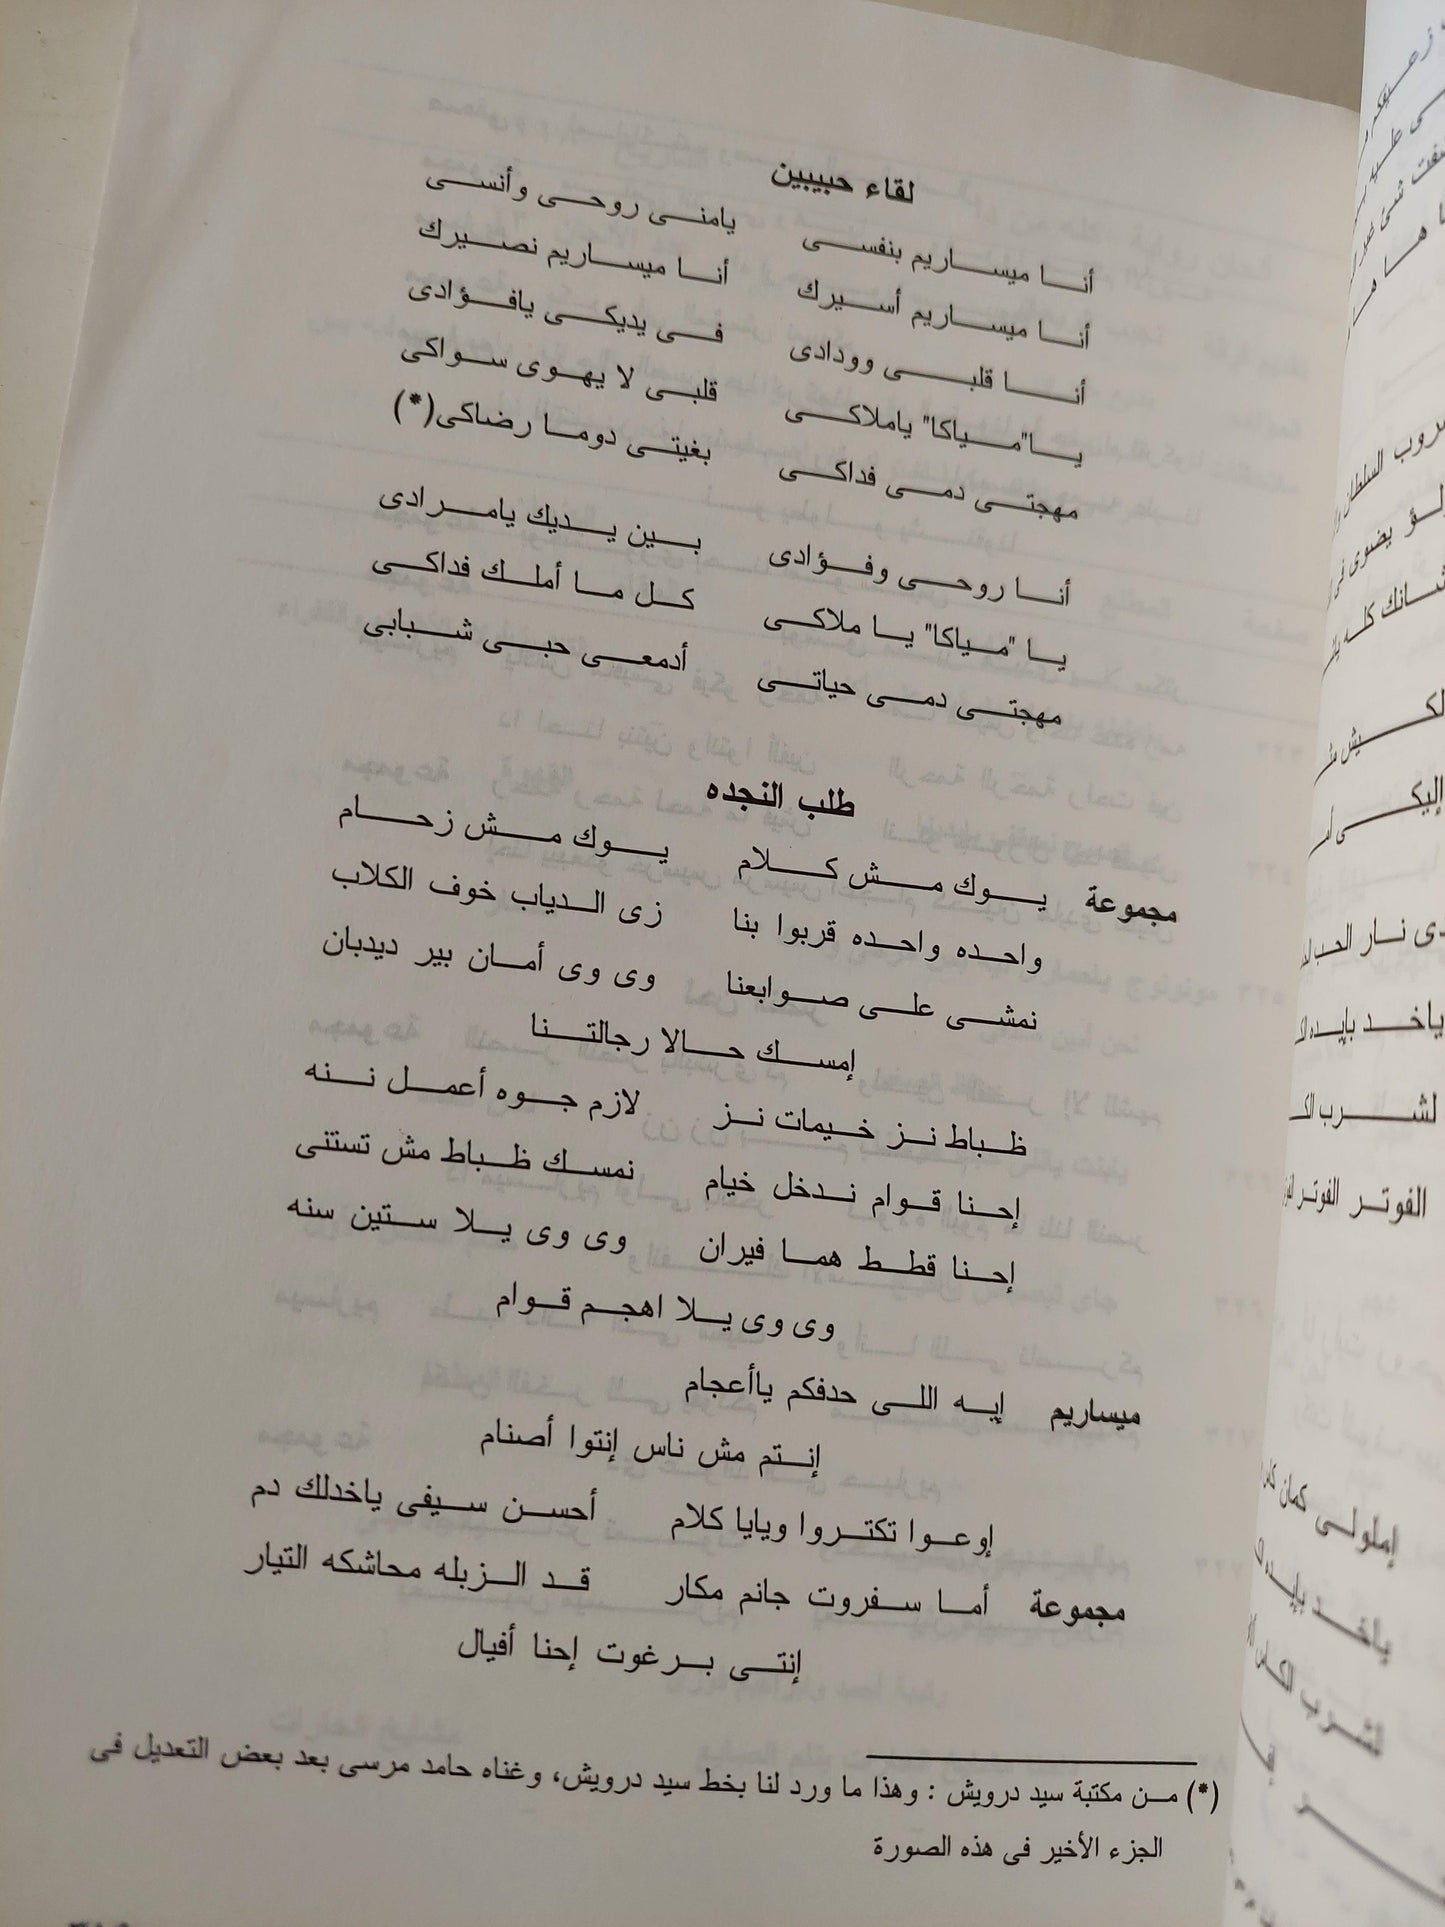 لقاء حبيبين
أنا ميساريم بنفسى يامنى روحى وأنسى
أنا ميساريم أسيرك أنا ميساريم نصيرك
أنا قلبى وودادى فى يديكى يافؤادى
يا"مياكا" ياملاكى قلبى لا يهوى سواكى
مهجتى دمى فداكى بغيتى دوما رضاكى(*)
أنا روحى وفؤادى بين يديك يامرادى
يا "مياكا" يا ملاكى كل ما أملك فداكى
مهجتى دمى حياتى أدمعى حبى شبابى
طلب النجده
مجموعة يوك مش كلام يوك مش زحام
واحده واحده قربوا بنا زى الدياب خوف الكلاب
نمشى على صوابعنا وى وى أمان بير ديدبان
إمسك حالا رجالتنا
ظباط نز خيمات نز لازم جوه أعمل ننه
إحنا قوام ندخل خيام نمسك ظباط مش تستنى
إحنا قطط هما فيران وى وى يلا ستين سنه
وى وى يلا اهجم قوام
ميساريم إيه اللى حدفكم ياأعجام
إنتم مش ناس إنتوا أصنام
إوعوا تكتروا ويايا كلام أحسن سيفى ياخدلك دم
مجموعة أما سفروت جانم مكار قد الزبله محاشكه التيار
إنتى برغوت إحنا أفيال
(*) من مكتبة سيد درويش : وهذا ما ورد لنا بخط سيد درويش، وغناه حامد مرسى بعد بعض التعديل فى
الجزء الأخير فى هذه الصورة
السلطان
يضوى
كله
إليكى
نار الحب
ياخد بإيده
لشرب
الفوتر الفوتر
إملولى كمان
ياخد بإيده
لشرب